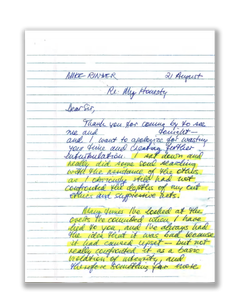 MIKE RINDER 21 August
Re: My Honesty
Dear Sir,
Thank you for coming by to see
me and tonight —
and I want to apologize for wasting
your time and creating further
I sat down and
really did some soul searching
with the assistance of the others,
as I obviously still had not
confronted the depths of my out
ethics and suppressive acts.
Many times I've looked at the
overts I've committed when I have
lied to you, and I've always had
the idea that it was bad because
it had caused upset — but not
really confronted it as a basic
violation of integrity, and
therefore something far more